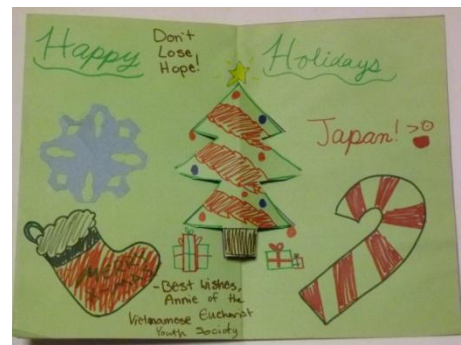 Happy
Don't
Lose
Hope!
Holidays
Japan!
MERRY
-Best Wishes,
Annie of the
Vietnamese Eucharist
Youth Society